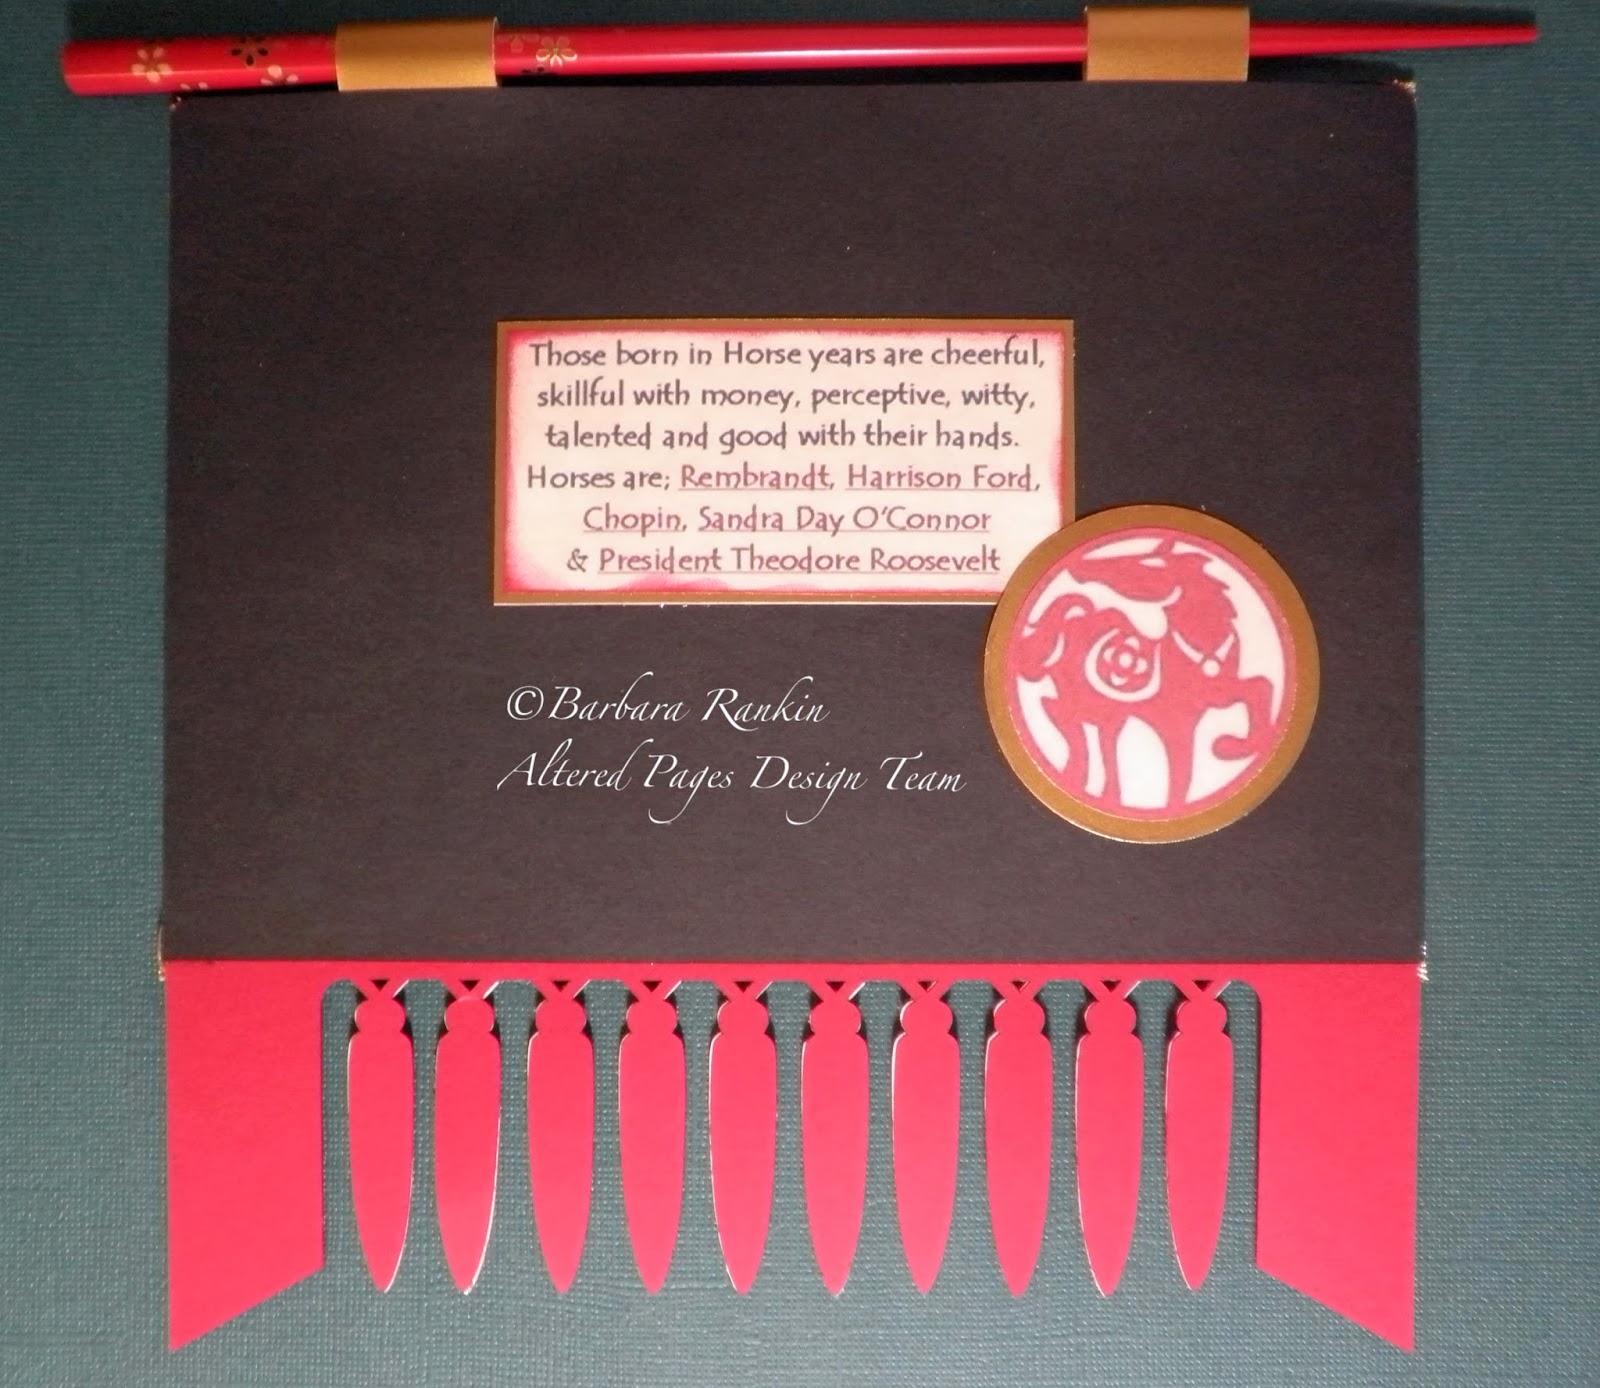 Those born in Horse years are cheerful,
skillful with money, perceptive, witty,
talented and good with their hands.
Horses are; Rembrandt, Harrison Ford,
Chopin, Sandra Day O'Connor
& President Theodore Roosevelt
©Barbara Rankin
Altered Pages Design Team